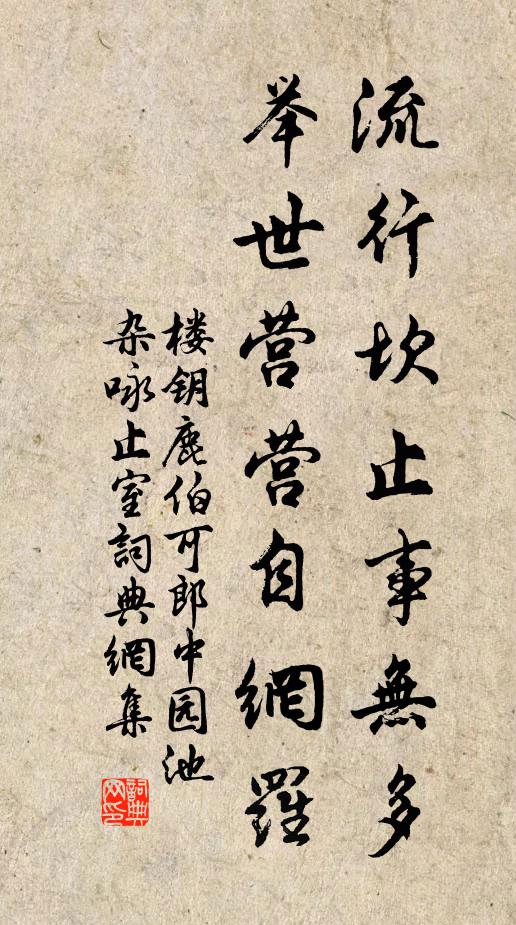 流行坎止事無多
举世营营自網羅
楼钥鹿伯可郎中园池
杂咏止室詞典網集
詞典网印